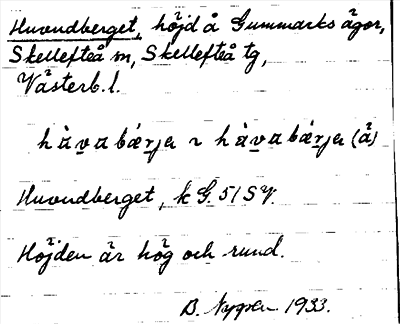 Huvudberget, höjd å Gummarks ägor,
Skellefteå sn, Skellefteå tg,
Västerb. l.
hàvabæ̀rjer ~ hàvabæ̀rjer (å)
Huvudberget, k G. 51 SV.
Höjden är hög och rund.
B. 1933.